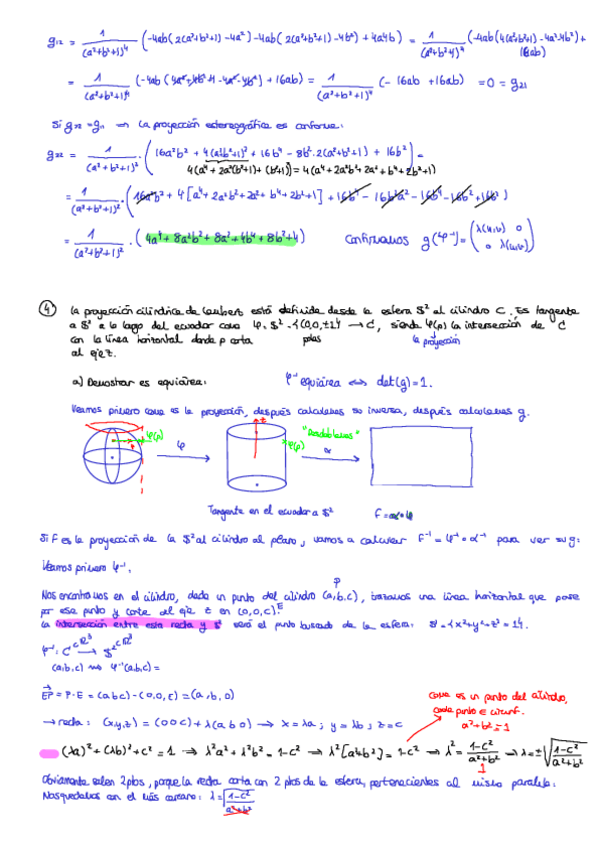 g₁₂ = 1/(a²+b²+1)⁴ (-4ab(2(a²+b²+1)-4a²)-4ab(2(a²+b²+1)-4b²)+4a4b) = 1/(a²+b²+1)⁴ (-4ab(4(a²+b²+1)-4a²-4b²)+16ab)
= 1/(a²+b²+1)⁴ (-4ab(4a²+4b²+4-4a²-4b²)+16ab) = 1/(a²+b²+1)⁴ (-16ab+16ab) = 0 = g₂₁
Si g₂₂ = g₁₁ ⟹ la proyección estereográfica es conforme:
g₂₂ = 1/(a²+b²+1)² · (16a²b² + 4(a²+b²+1)² + 16b⁴ - 8b²·2(a²+b²+1) + 16b²) =
4(a⁴+2a²(b²+1)+(b²+1)²) = 4(a⁴+2a²b²+2a²+b⁴+2b²+1)
= 1/(a²+b²+1)² · (16a²b² + 4[a⁴+2a²b²+2a²+b⁴+2b²+1] + 16b⁴ - 16b²a² - 16b⁴ - 16b² + 16b²)
= 1/(a²+b²+1)² · (4a⁴+8a²b²+8a²+4b⁴+8b²+4) Confirmamos g(φ⁻¹) = (λ(u,v) 0
0 λ(u,v))
④ La proyección cilíndrica de Lambert está definida desde la esfera S² al cilindro C. Es tangente
a S² a lo largo del ecuador como φ: S² - {(0,0,±1)} → C, siendo φ(p) la intersección de C
con la línea horizontal donde p corta polos la proyección
al eje z.
a) Demostrar es equiárea: φ⁻¹ equiárea ⟺ det(g) = 1.
Veamos primero como es la proyección, después calculamos su inversa, después calculamos g.
φ(p) φ φ(p) "Desdoblamos" α
Tangente en el ecuador a S² F = α∘φ
Si F es la proyección de la S² al cilindro al plano, vamos a calcular F⁻¹ = φ⁻¹ ∘ α⁻¹ para ver su g:
Veamos primero φ⁻¹:
Nos encontramos en el cilindro, dado un punto del cilindro (a,b,c) P, trazamos una línea horizontal que pase
por ese punto y corte al eje z en (0,0,c) E
La intersección entre esta recta y S² será el punto buscado de la esfera: S² = {x²+y²+z² = 1}.
φ⁻¹: C ⊂ R³ → S² ⊂ R³
(a,b,c) ⇝ φ⁻¹(a,b,c) =
EP = P - E = (a,b,c) - (0,0,c) = (a,b,0)
→ recta: (x,y,z) = (0 0 c) + λ(a b 0) → x = λa ; y = λb ; z = c
como es un punto del cilindro,
cada punto ∈ circunf.
a²+b² = 1
(λa)² + (λb)² + c² = 1 → λ²a² + λ²b² = 1-c² → λ²[a²+b²] = 1-c² → λ² = 1-c²/a²+b² → λ = ±√(1-c²/a²+b²)
1
Obviamente salen 2 ptos, porque la recta corta con 2 ptos de la esfera, pertenecientes al mismo paralelo.
Nos quedamos con el más cercano: λ = √(1-c²/a²+b²)